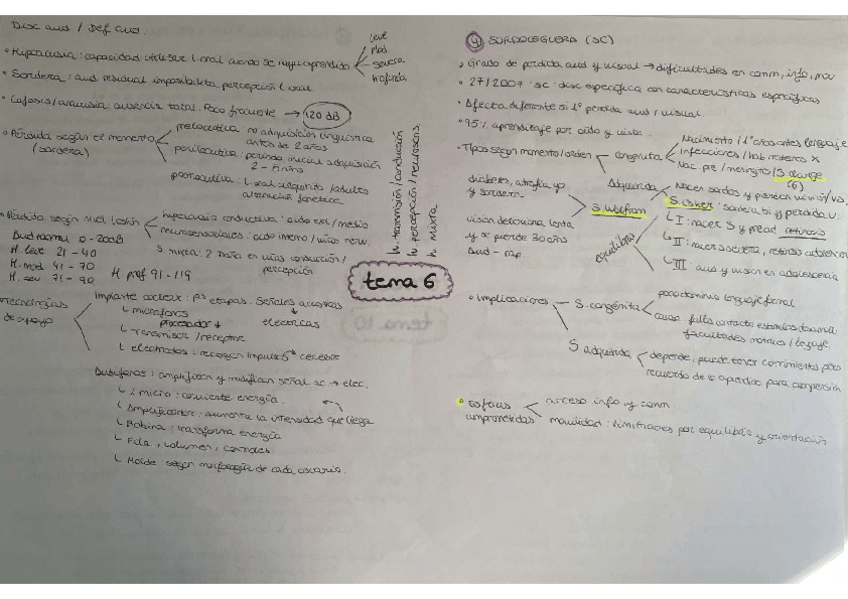 Disc aud / Def aud
• Hipoacusia: capacidad utilizar l. oral aunque se haya aprendido
leve
Mod.
severa
Profunda
• Sordera: aud residual imposibilita percepción l. oral
• Cofosis/anacusia ausencia total. Poco frecuente → 120 dB
• Pérdida según el momento (sordera)
prelocutiva no adquisición lingüística antes de 2 años
perilocutiva: periodo inicial adquisición 2 - años
poslocutiva: l. oral adquirido/adultos alteración fonética
• Pérdida según lesión
hipoacusia conductiva: oído ext/medio
neurosensoriales: oído interno/vías nerv.
S. mixta: 2 daña en vías conducción/percepción
Aud normal 0 - 20dB
H. leve 21 - 40
H. mod 41 - 70
H. sev 71 - 90
H. prof 91 - 119
h. transmisión/conducción
h. percepción/neurosens
h. mixta
tema 6
Tecnologías de apoyo
implante coclear: etapas. Señales acústicas ↓ eléctricas
↳ micrófono
procesador ↓
↳ Transmisor/receptor
↳ electrodos: recogen impulso → cerebro
Audífonos: amplifican y modifican señal ac → elec.
↳ micro: convierte energía.
↳ Amplificador: aumenta la intensidad que llega
↳ Bobina: transforma energía
↳ Pila, volumen, controles
↳ Molde: según morfología de cada usuario.
④ SORDOCEGUERA (SC)
• Grado de pérdida aud y visual → dificultades en comm, info, mov
• 27/2007: sc: disc específica con características específicas
• Afecta diferente si 1º pérdida aud / visual.
• 95% aprendizaje por oído y vista.
• Tipos según momento/orden
congénita
Nacimiento / 1º antes lenguaje
infecciones / hab maternos X
Nac. pre / meningitis / S charge (6)
Adquirida
Nacer sordos y pierden visión
S. Usher: sordera bi y pérdida v.
↳ I: nacer S y pread retinosis
↳ II: nacer s severa, retinosis adolescen
↳ III: aud y visión en adolescencia
equilibrio
S. wolfram
diabetes, atrofia yo y sordera.
visión deteriora lenta y se pierde 30 años
Aud - rap
• Implicaciones
S. congénita
poco dominio lenguaje formal
causa falta contacto estímulos desarrollo facultades motoras / lenguaje
S adquirida
depende, puede tener conocimientos pero recuerdo de lo aprendido para comprensión
• esferas comprometidas
acceso info y comm
movilidad: limitaciones por equilibrio y orientación